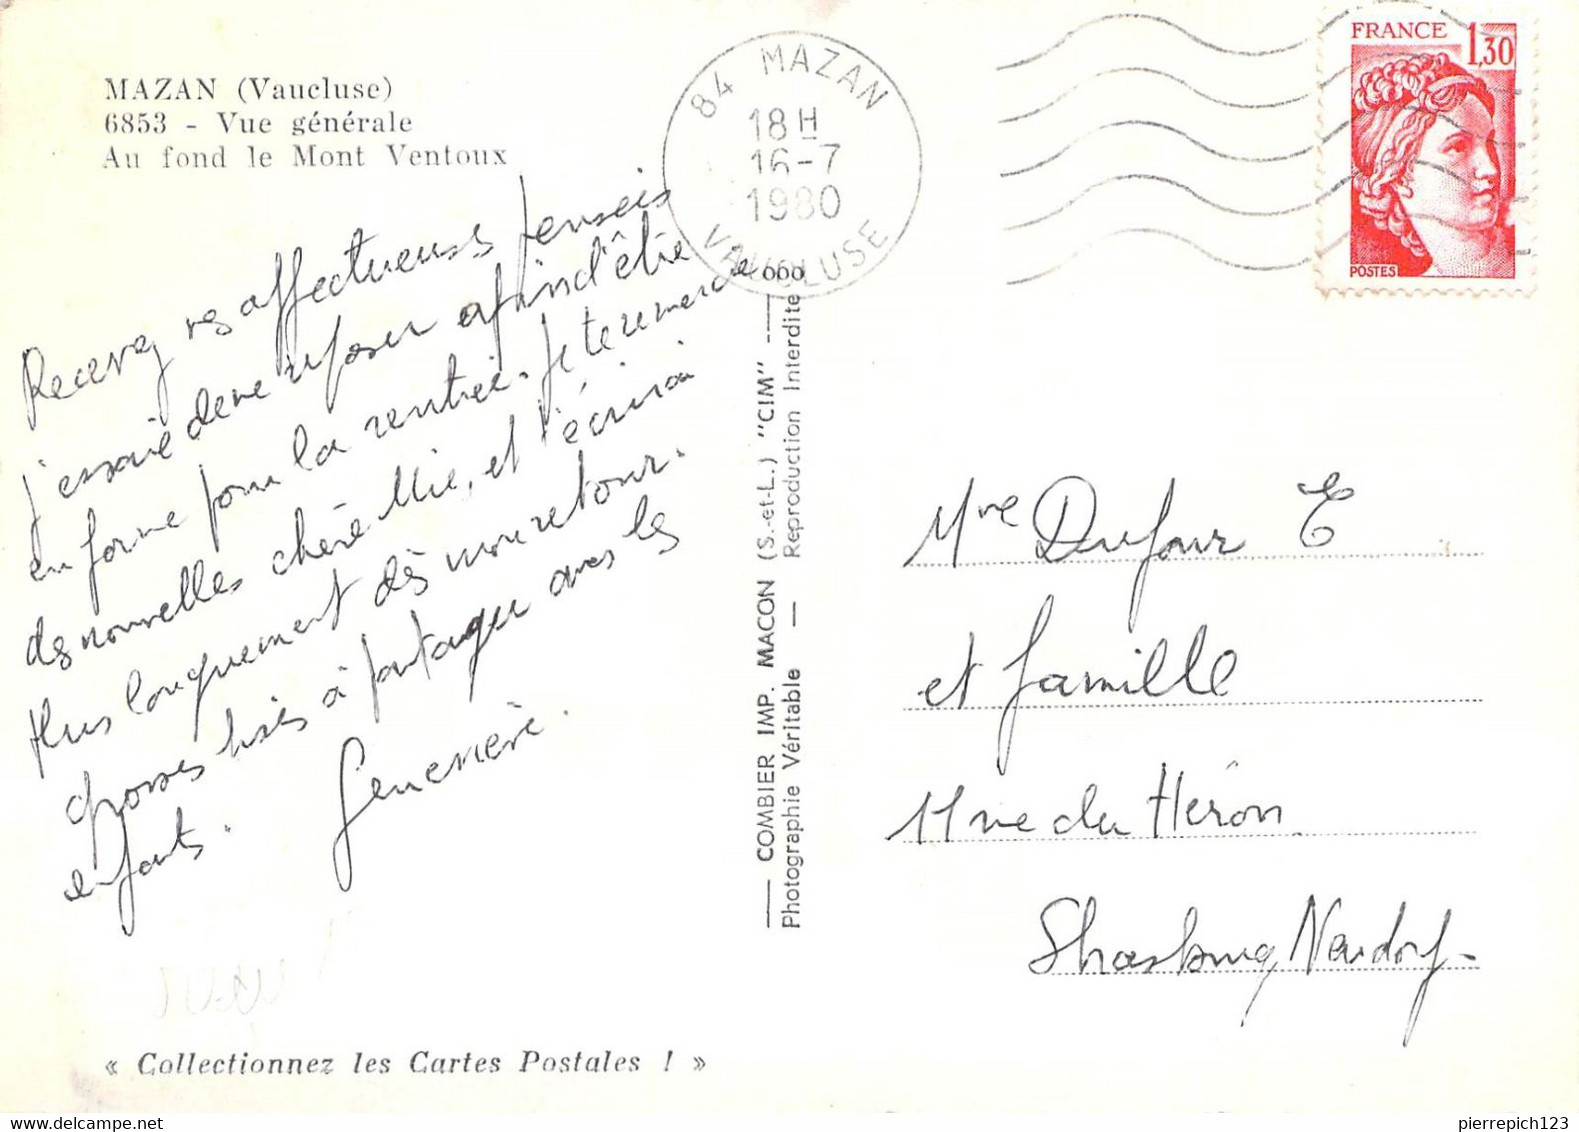 MAZAN (Vaucluse)
6853 - Vue générale
Au fond le Mont Ventoux
84 MAZAN
18H
16-7
1980
VAUCLUSE
FRANCE
1,30
POSTES
Recevez nos affectueuses pensées
j'essaie de me reposer afin d'être
en forme pour la rentrée. Je te remercie
des nouvelles chère Mie, et t'écrirai
plus longuement dès mon retour.
grosses bises à partager avec les
enfants. Geneviève.
COMBIER IMP. MACON (S.-et-L.) "CIM"
Photographie Véritable — Reproduction Interdite
Mme Dufour E
et famille
11 rue du Héron
Strasbourg Neudorf-
« Collectionnez les Cartes Postales ! »
pierrepich123